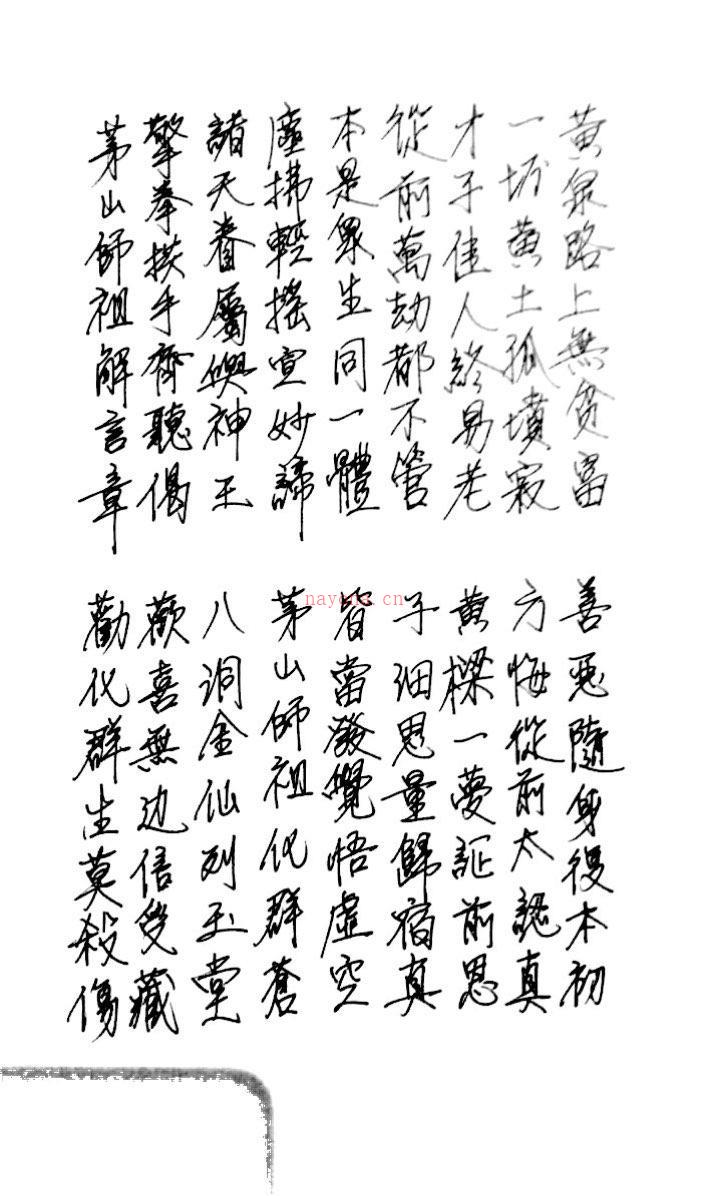 黄泉路上無貧富 善惡隨身復本初
一坵黄土孤墳寂 方悔從前太認真
才子佳人終易老 黄樑一夢証前恩
從前萬劫都不管 子细思量歸宿真
本是衆生同一體 皆當發覺悟虛空
塵拂輕摇宣妙諦 茅山師祖化群蒼
諸天眷屬與神王 八洞金仙列玉堂
擎拳挟手齊聽偈 歡喜無边信受藏
茅山師祖解言章 勸化群生莫殺傷
nayona.cn